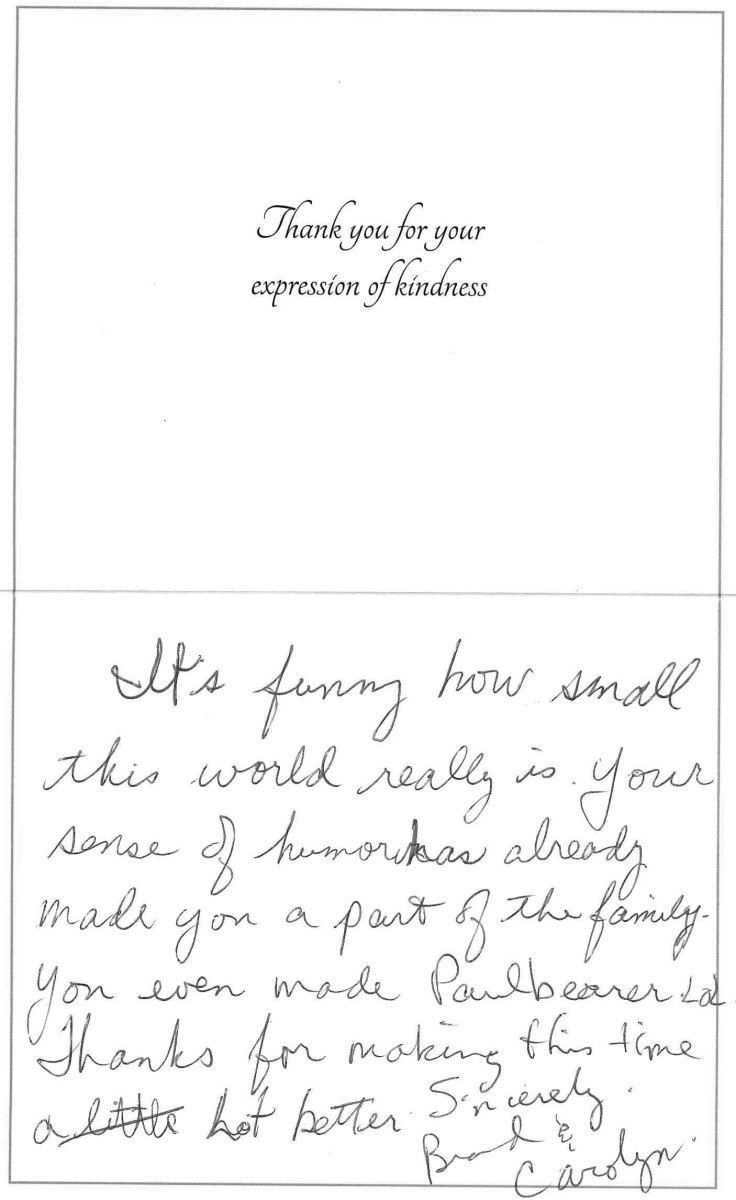 Thank you for your
expression of kindness
It's funny how small
this world really is. Your
sense of humor has already
made you a part of the family.
You even made Paulbearer Lol.
Thanks for making this time
a little lot better. Sincerely,
Brad &
Carolyn.